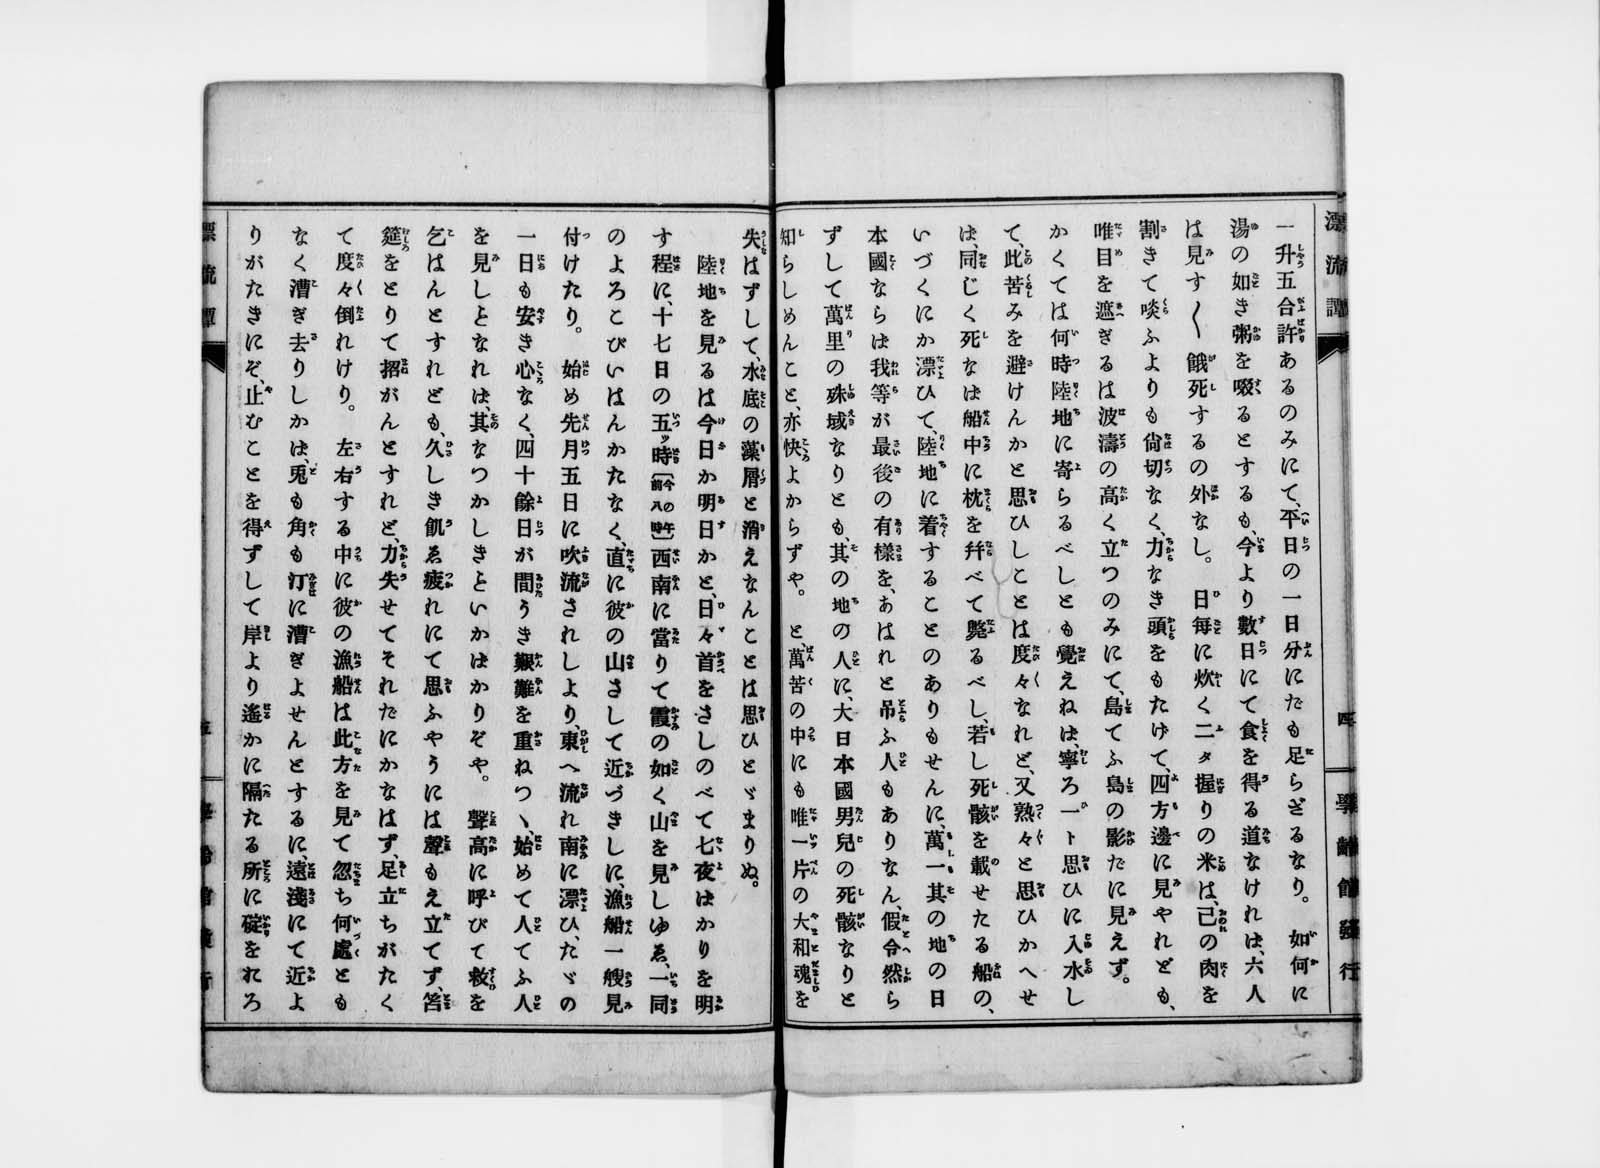 漂流譚
四
學齡館發行
一升五合許あるのみにて、平日の一日分にだも足らざるなり。　如何に
湯の如き粥を啜るとするも、今より數日にて食を得る道なけれは、六人
は見す〱餓死するの外なし。　日每に炊く二タ握りの米は、己の肉を
割きて啖ふよりも尙切なく、力なき頭をもたけて、四方邊に見やれども、
唯目を遮ぎるは波濤の高く立つのみにて、島てふ島の影だに見えず。
かくては何時陸地に寄らるべしとも覺えねは、寧ろ一ト思ひに入水し
て、此苦みを避けんかと思ひしことは度々なれど、又熟々と思ひかへせ
は、同じく死なは船中に枕を幷べて斃るべし、若し死骸を載せたる船の、
いづくにか漂ひて、陸地に着することのありもせんに、萬一其の地の日
本國ならは我等が最後の有樣を、あはれと吊ふ人もありなん、假令然ら
ずして萬里の殊域なりとも、其の地の人に、大日本國男兒の死骸なりと
知らしめんこと、亦快よからずや。　と萬苦の中にも唯一片の大和魂を
失はずして、水底の藻屑と消えなんことは思ひとゞまりぬ。
　陸地を見るは今日か明日かと、日々首をさしのべて七夜はかりを明
す程に、十七日の五ッ時〔今の午前八時〕西南に當りて霞の如く山を見しゆゑ、一同
のよろこびいはんかたなく、直に彼の山さして近づきしに、漁船一艘見
付けたり。　始め先月五日に吹流されしより、東へ流れ南に漂ひ、たゞの
一日も安き心なく、四十餘日が間うき艱難を重ねつゝ、始めて人てふ人
を見しとなれは、其なつかしきといかはかりぞや。　聲高に呼びて救を
乞はんとすれども、久しき飢ゑ疲れにて思ふやうには聲もえ立てず、笘
筵をとりて招がんとすれど、力失せてそれだにかなはず、足立ちがたく
て度々倒れけり。　左右する中に彼の漁船は此方を見て忽ち何處とも
なく漕ぎ去りしかは、兎も角も汀に漕ぎよせんとするに、遠淺にて近よ
りがたきにぞ、止むことを得ずして岸より遙かに隔たる所に碇をれろ